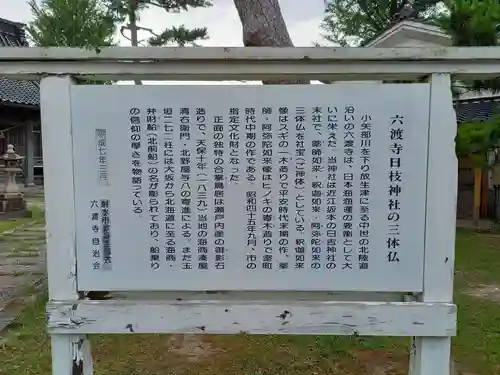 六渡寺日枝神社の三体仏
小矢部川を下り放生津に至る中世の北陸道
沿いの六渡寺は、日本海海運の要衝として大
いに栄えた。当神社は近江坂本の日吉神社の
末社で、薬師如来・釈迦如来・阿弥陀如来の
三体仏を社宝(ご神体)とする。釈迦如来
像はスギの一木造りで平安時代末期の作、薬
師・阿弥陀如来像はヒノキの寄木造りで室町
時代中期の作である。昭和四十五年九月、市の
指定文化財となった。
正面の独特の合掌鳥居は瀬戸内産の御影石
造りで、天保十年(一八三九)当地の海商湊屋
清右衛門・北野屋与八の寄進による。また玉
垣二七二柱には大坂から北海道に至る海商・
弁財船(北前船)の名が彫られており、船乗り
の信仰の厚さを物語っている。
平成七年三月
六渡寺自治会